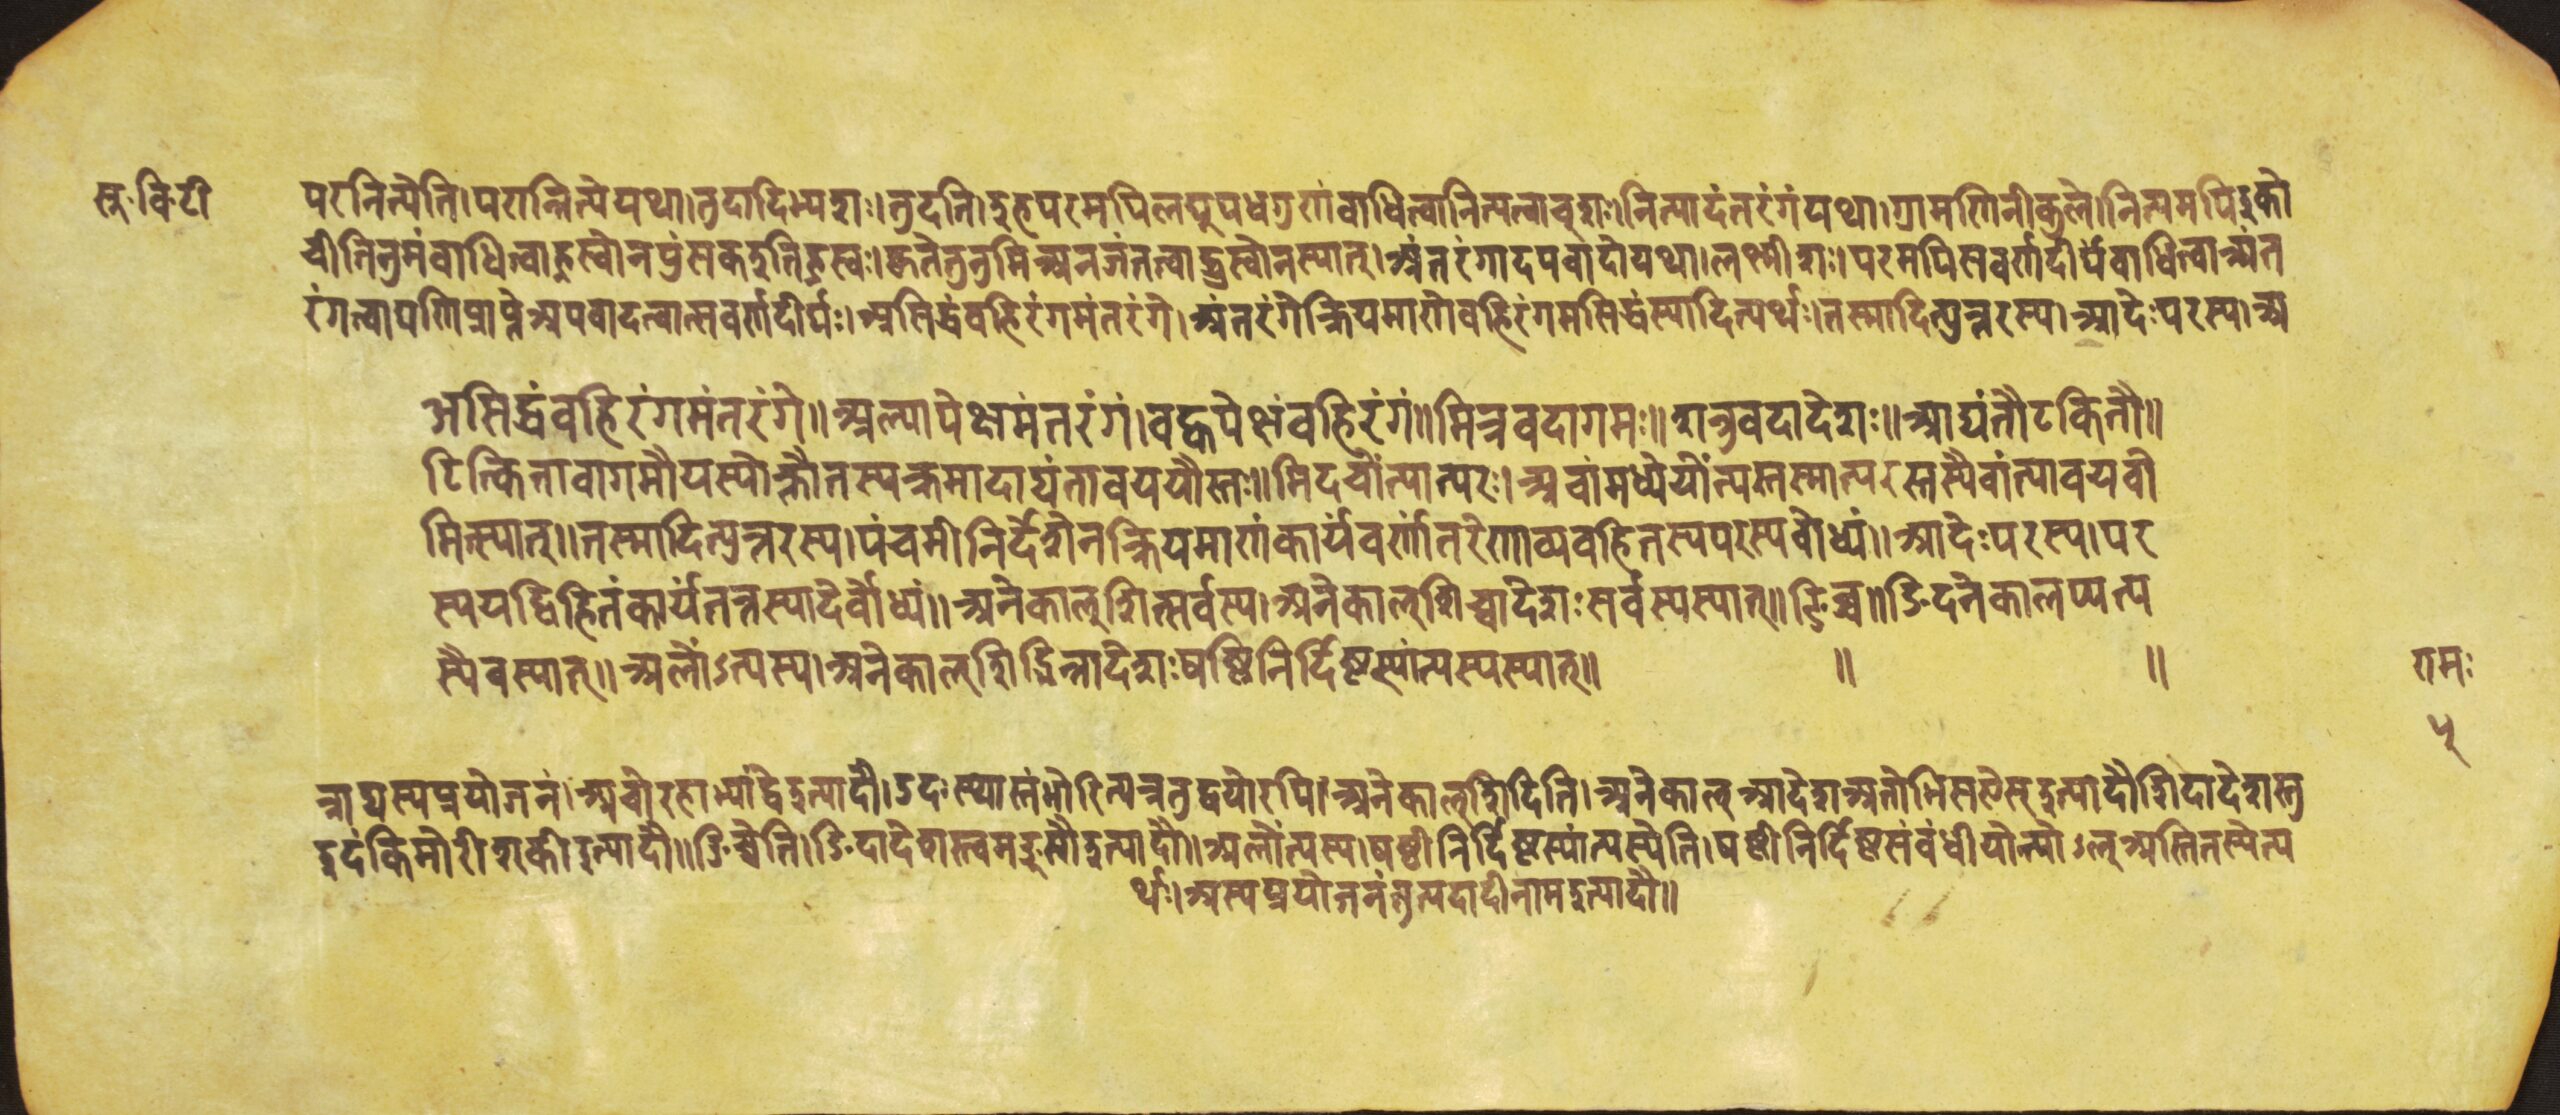 स्त्रः विटी
परनित्येति।परान्नित्येयथा।तुदादिभ्यशः।तुदति।दुहपरमपिलघुपधगुणंवाधित्वानित्यत्वावुशः।नित्यादंतरंगंयथा।ग्रामणिनीकुले।नित्यमपिइको
चीतिनुमंवाधित्वाह्रस्वोनपुंसकइतिह्रस्वः।कृतेतुनुमिअनजंतत्वाद्ध्रस्वोनस्यात्।अंतरंगादपवादोयथा।लक्ष्मीशः।परमपिसवर्णदीर्घंवाधित्वाअंत
रंगत्वापणिप्राप्नेअपवादत्वात्सवर्णदीर्घः।असिद्धंवहिरंगमंतरंगे।अंतरंगेक्रियमाणेवहिरंगमसिद्धंस्यादित्यर्थः।तस्मादित्युत्तरस्य।आदेःपरस्य।अ
असिद्धंवहिरंगमंतरंगे॥अल्पापेक्षमंतरंगं।वह्वपेक्षंवहिरंगं॥मित्रवदागमः॥शत्रुवदादेशः॥आद्यंतौटकितौ॥
टित्कितावागमौयस्योक्तौतस्यक्रमादाद्यंतावयवौस्तः॥मिदचोंत्यात्परः।अचांमध्येयोंत्यस्तस्मात्परस्तस्यैवांत्यावयवो
मित्स्यात्॥तस्मादित्युत्तरस्य।पंचमीनिर्देशेनक्रियमाणंकार्यंवर्णांतरेणाव्यवहितस्यपरस्यवोध्यं॥आदेःपरस्य।पर
स्ययद्विहितंकार्यंतत्तस्यादेर्वोध्यं॥अनेकाल्शित्सर्वस्य।अनेकाल्शिच्चादेशःसर्वस्यस्यात्॥ङिच्च॥ङिदनेकालप्यत्य
स्यैवस्यात्॥अलोंऽत्यस्य।अनेकाल्शिद्भिन्नादेशःषष्ठिनिर्दिष्टस्यांत्यस्यस्यात्॥ ॥ ॥
राम॰
५
त्राद्यस्यप्रयोजनं।अचोरहाभ्यांद्वेइत्यादौ।ऽदःस्थास्तंभोरित्यत्रतुद्वयोरपि।अनेकाल्शिदिति।अनेकाल्आदेशअतोभिसऐस्इत्यादौशिदादेशस्तु
इदंकिमोरीशकीइत्यादौ॥ङिच्चेति।ङिदादेशस्त्वमङ्सौइत्यादौ॥अलोंत्यस्य।षष्ठीनिर्दिष्टस्यांत्यस्येति।षष्ठीनिर्दिष्टसंवंधीयोन्त्योऽल्अस्तितस्येत्य
र्थः।अस्यप्रयोजनंतुत्यदादीनामइत्यादौ॥